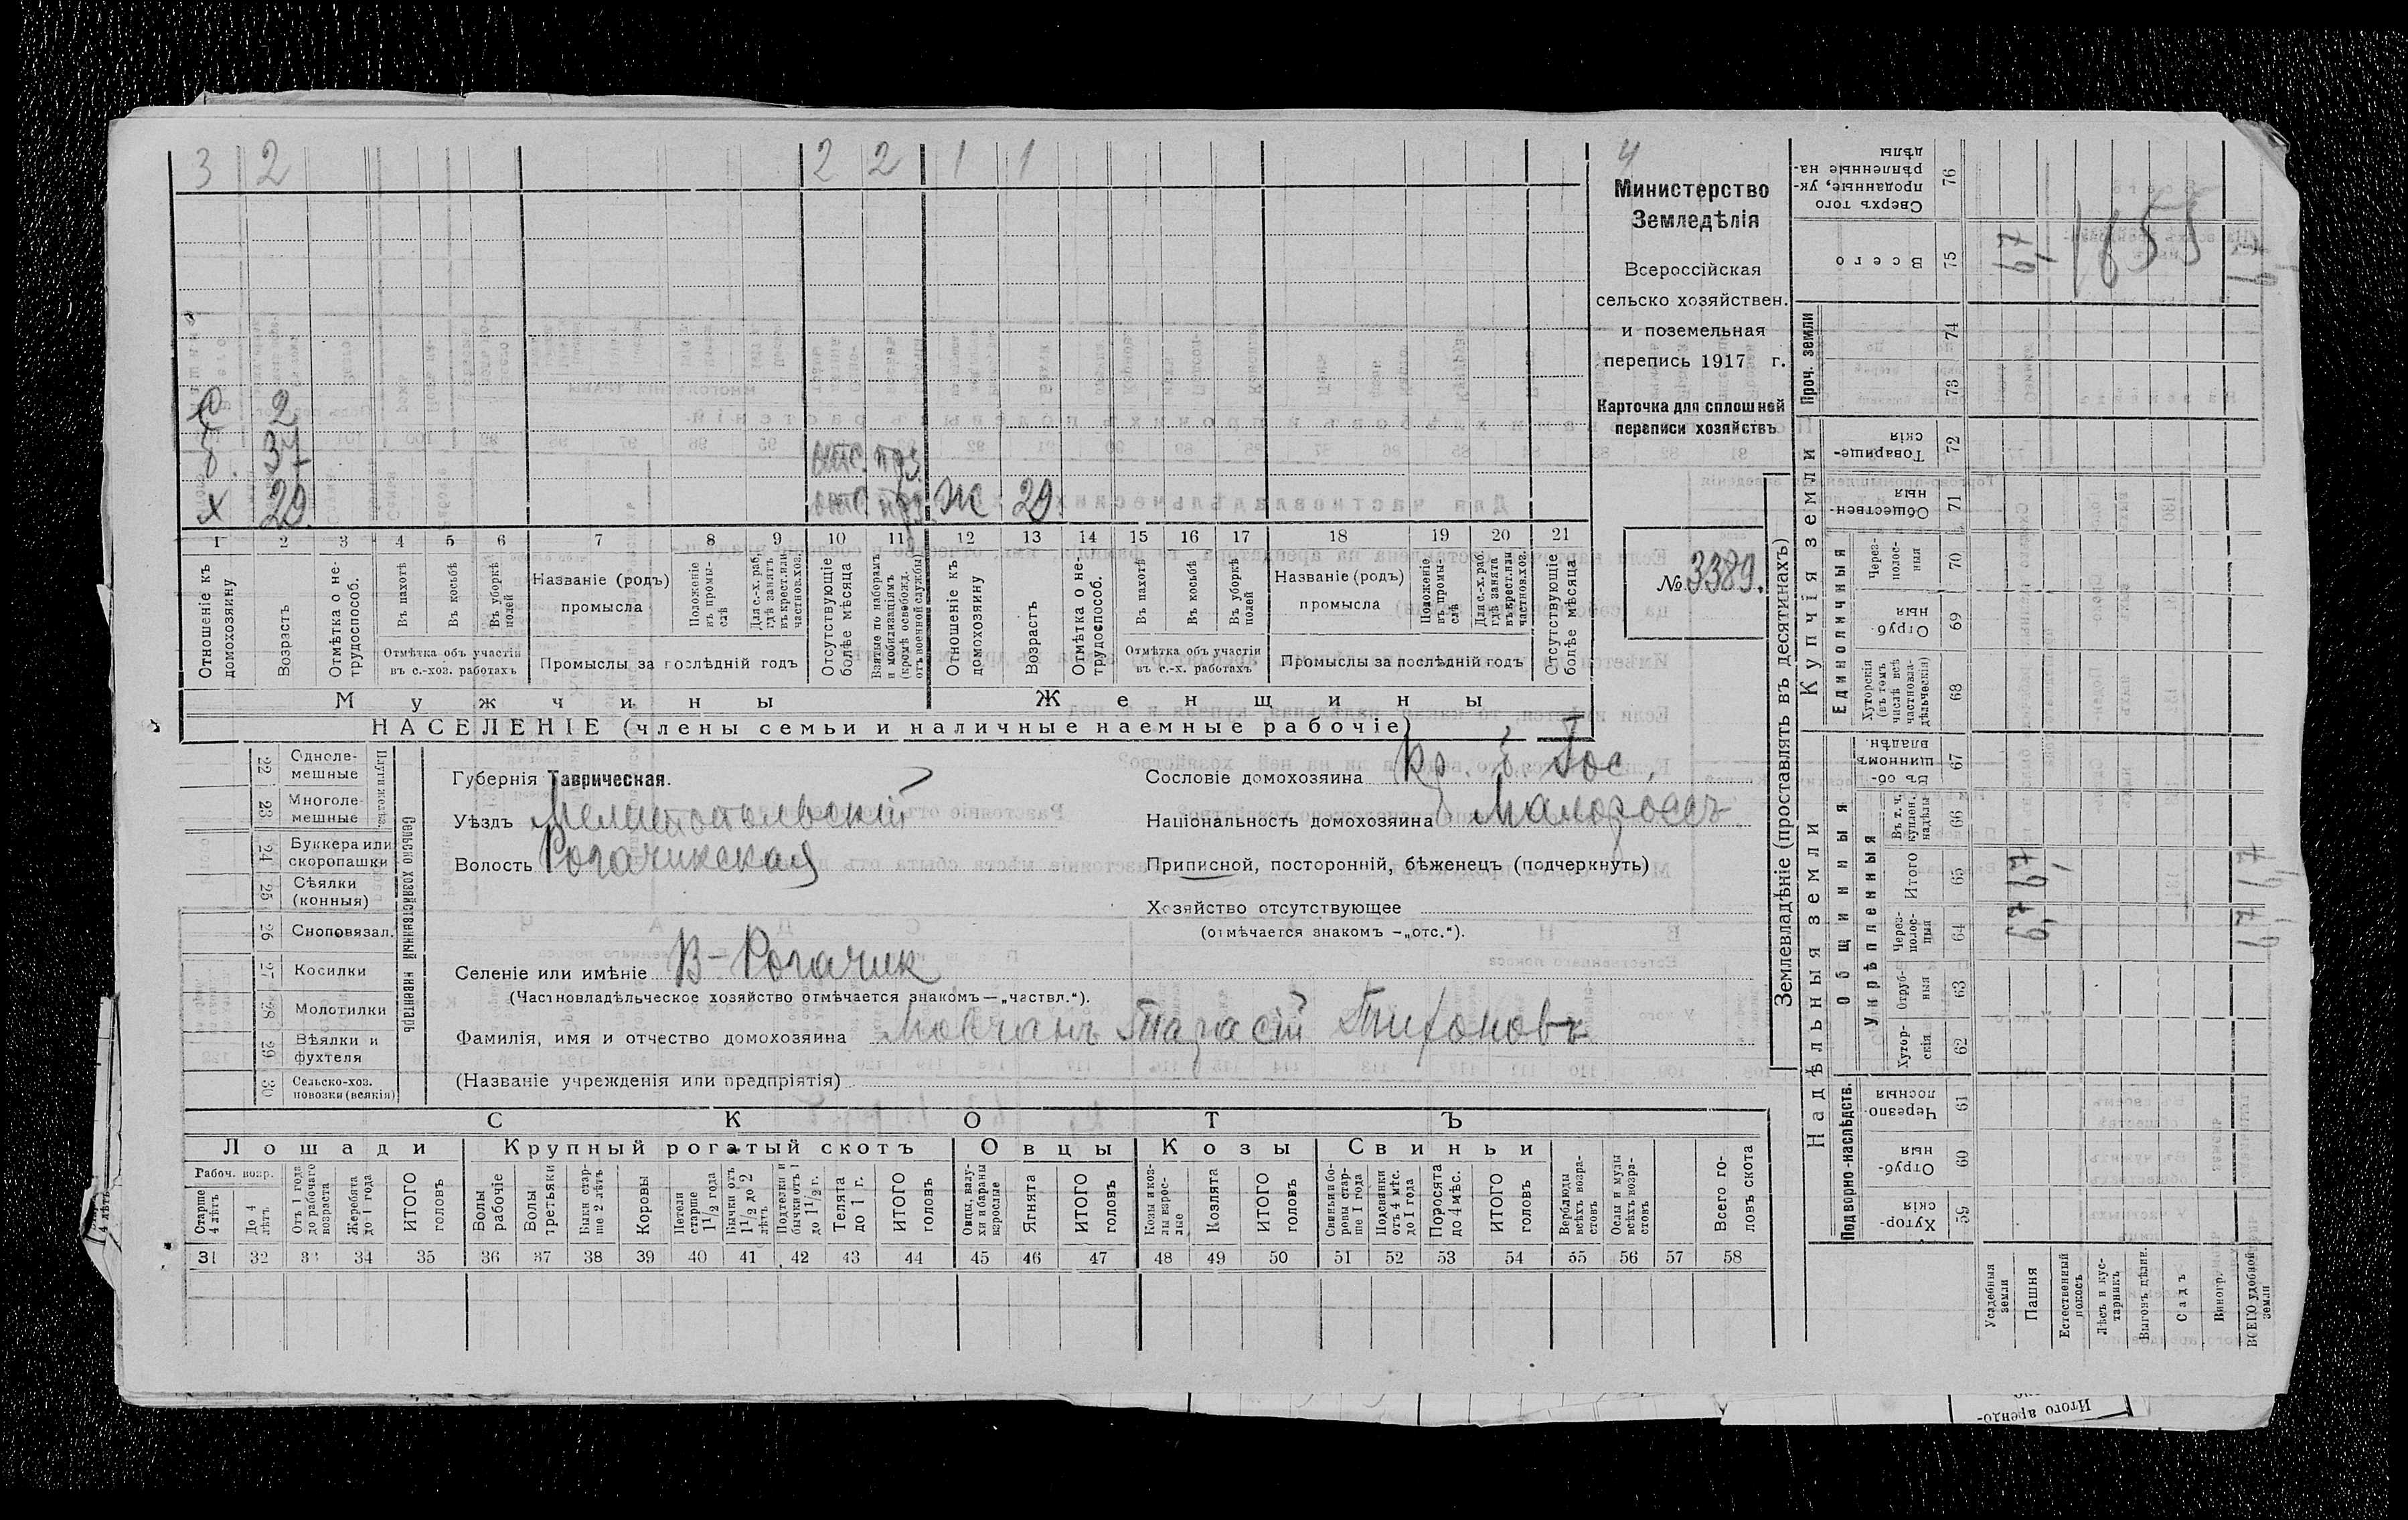 3 2 2 2 1 1
с 2
б. 37 отс. прз.
х 29 отс. прз. ж 29
1 2 3 4 5 6 7 8 9 10 11 12 13 14 15 16 17 18 19 20 21
Отношеніе къ домохозяину
Возрастъ
Отмѣтка о не-трудоспособ.
Въ пахотѣ
Въ косьбѣ
Въ уборкѣ полей
Отмѣтка объ участіи въ с.-хоз. работахъ
Названіе (родъ) промысла
Положеніе въ промы-слѣ
Для с.-х. раб., гдѣ занятъ въ крест. или частнов. хоз.
Промыслы за послѣдній годъ
Отсутствующіе болѣе мѣсяца
Взятые по наборамъ и мобилизаціямъ (кромѣ освобожд. отъ военной службы)
Отношеніе къ домохозяину
Возрастъ
Отмѣтка о не-трудоспособ.
Въ пахотѣ
Въ косьбѣ
Въ уборкѣ полей
Отмѣтка объ участіи въ с.-х. работахъ
Названіе (родъ) промысла
Положеніе въ промы-слѣ
Для с.-х. раб. гдѣ занята въ крест. или частнов. хоз.
Промыслы за послѣдній годъ
Отсутствующіе болѣе мѣсяца
Мужчины Женщины
НАСЕЛЕНІЕ (члены семьи и наличные наемные рабочіе)
4
Министерство
Земледѣлія
Всероссійская
сельско хозяйствен.
и поземельная
перепись 1917 г.
Карточка для сплошной
переписи хозяйствъ
№ 3389.
22 Одноле-мешные
23 Многоле-мешные
24 Буккера или скоропашки
25 Сѣялки (конныя)
26 Сноповязал.
27 Косилки
28 Молотилки
29 Вѣялки и фухтеля
30 Сельско-хоз. повозки (всякія)
Сельско хозяйственный инвентарь
Губернія Таврическая.
Уѣздъ Мелитопольскій
Волость Рогачикская
Селеніе или имѣніе В-Рогачик
(Частновладѣльческое хозяйство отмѣчается знакомъ—„частвл.“).
Фамилія, имя и отчество домохозяина Мовчанъ Тарасій Тихоновъ
(Названіе учрежденія или предпріятія)
Сословіе домохозяина Кр. б. Гос.
Національность домохозяина Малороссъ
Приписной, посторонній, бѣженецъ (подчеркнуть)
Хозяйство отсутствующее
(отмѣчается знакомъ —„отс.“).
СКОТЪ
Лошади Крупный рогатый скотъ Овцы Козы Свиньи
Рабоч. возр.
Старше 4 лѣтъ
До 4 лѣтъ
Отъ 1 года до рабочаго возраста
Жеребята до 1 года
ИТОГО головъ
Волы рабочіе
Волы третьяки
Быки стар-ше 2 лѣтъ
Коровы
Нетели старше 1 1/2 года
Бычки отъ 1 1/2 до 2 лѣтъ
Подтелки и бычки отъ 1 до 1 1/2 г.
Телята до 1 г.
ИТОГО головъ
Овцы, валу-хи и бараны взрослые
Ягнята
ИТОГО головъ
Козы и коз-лы взрос-лые
Козлята
ИТОГО головъ
Свиньи и бо-ровы стар-ше 1 года
Подсвинки отъ 4 мѣс. до 1 года
Поросята до 4 мѣс.
ИТОГО головъ
Верблюды всѣхъ возра-стовъ
Ослы и мулы всѣхъ возра-стовъ
Всего го-ловъ скота
31 32 33 34 35 36 37 38 39 40 41 42 43 44 45 46 47 48 49 50 51 52 53 54 55 56 57 58
Землевладѣніе (проставлять въ десятинахъ)
Надѣльныя земли Купчія земли Проч. земли
Подворно-наслѣдств. Общинныя Укрѣпленныя Единоличныя
Хутор-скія 59
Отруб-ныя 60
Черезпо-лосныя 61
Хутор-скія 62
Отруб-ныя 63
Через-полос-ныя 64 6,79 6,79
Итого 65 6,79 6,79
Въ т. ч. куплен. надѣлы 66
Въ об-щинномъ владѣн. 67
Хуторскія (въ томъ числѣ всѣ частновла-дѣльческія) 68
Отруб-ныя 69
Через-полос-ныя 70
Обществен-ныя 71
Товарище-скія 72
73
74
Всего 75 1855
Сверхъ того проданные, ук-рѣпленные на-дѣлы 76
Усадебныя земли
Пашня
Естественный покосъ
Лѣсъ и кус-тарникъ
Выгонъ цѣлин.
Садъ
Виногр.
ВСЕГО удобной земли
Итого арендо-